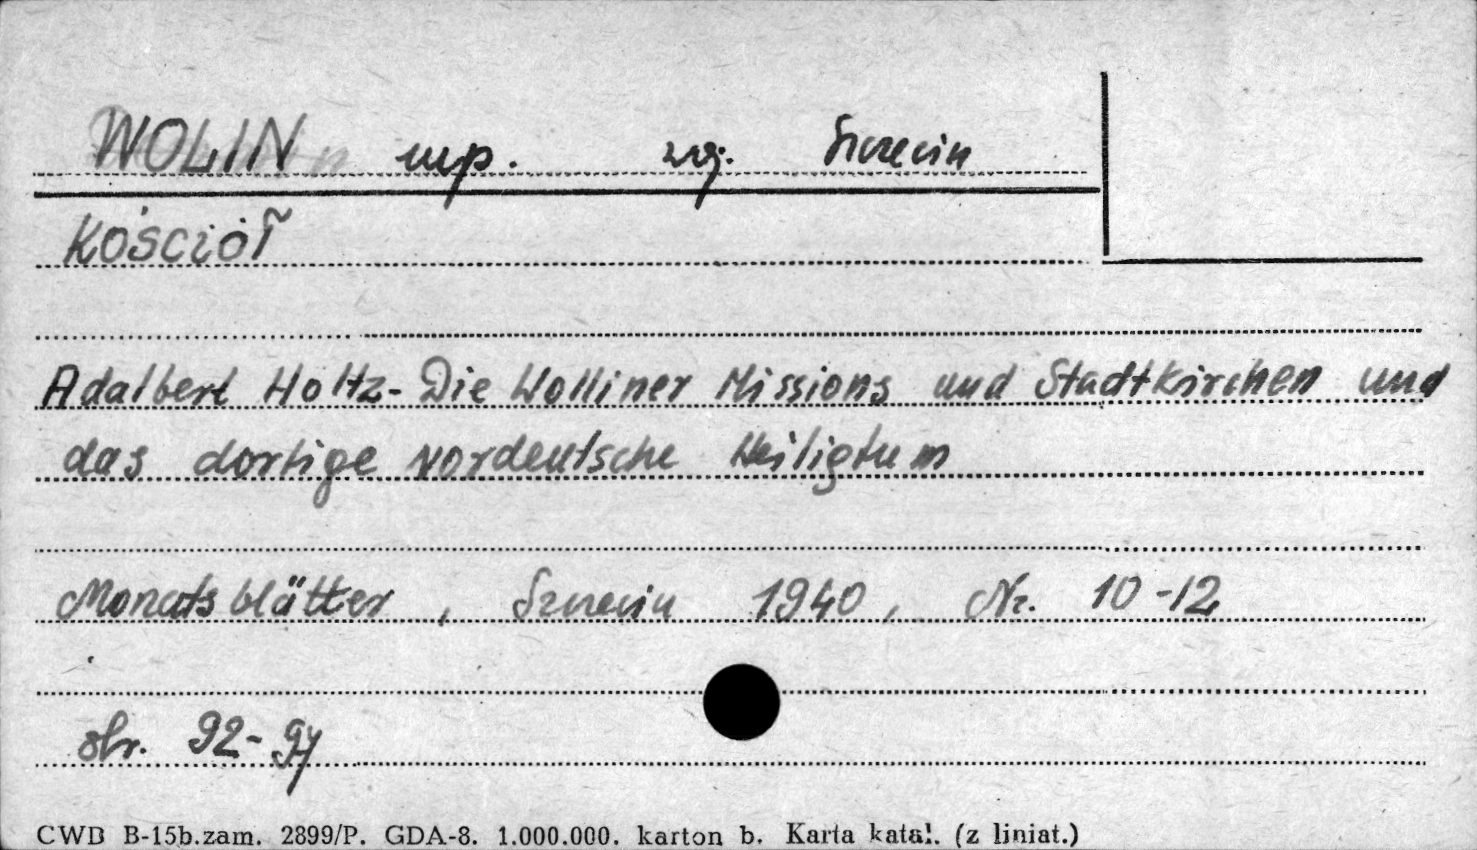 WOLIN wp. zg. Szczecin
KOŚCIÓŁ
Adalbert Holtz - Die Wolliner Missions und Stadtkirchen und
das dortige nordeutsche Heiligtum
Monatsblätter, Szczecin 1940, Nr. 10-12
str. 92-94
CWD B-15b.zam. 2899/P. GDA-8. 1.000.000. karton b. Karta katal. (z liniat.)